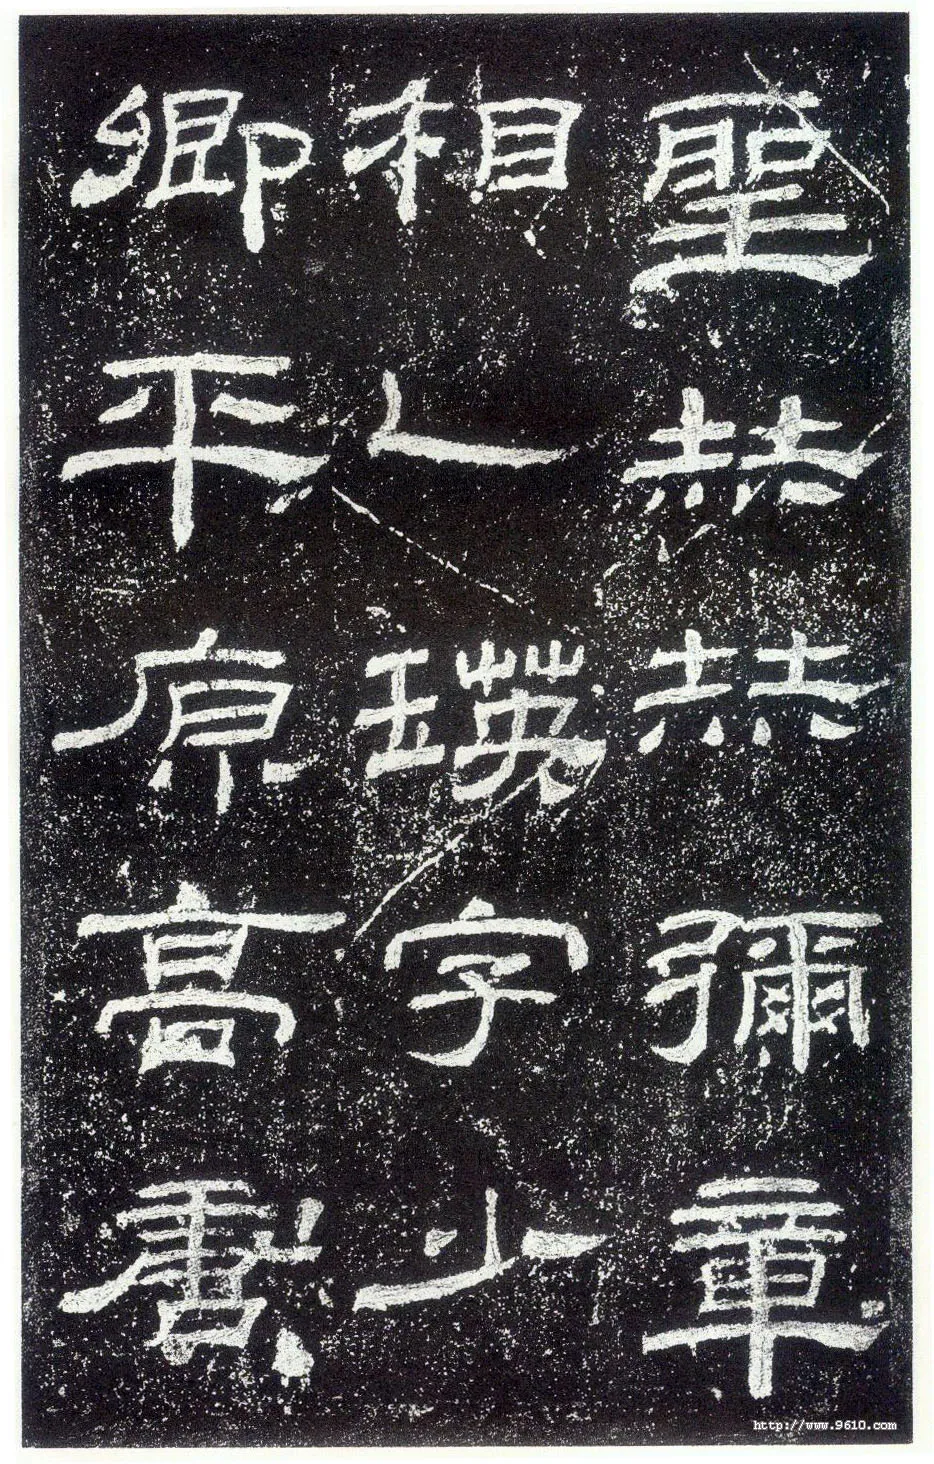 聖赫赫彌章
相乙瑛字少
卿平原高唐
http://www.9610.com